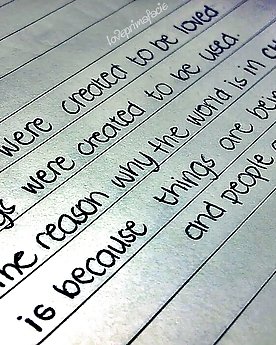 loveprimafacie
were created to be loved.
gs were created to be used.
he reason why the world is in
is because things are bein
and people